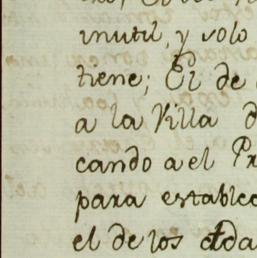 inutil, y solo
tiene; El de
a la Villa d
cando a el Pr
para establec
el de los